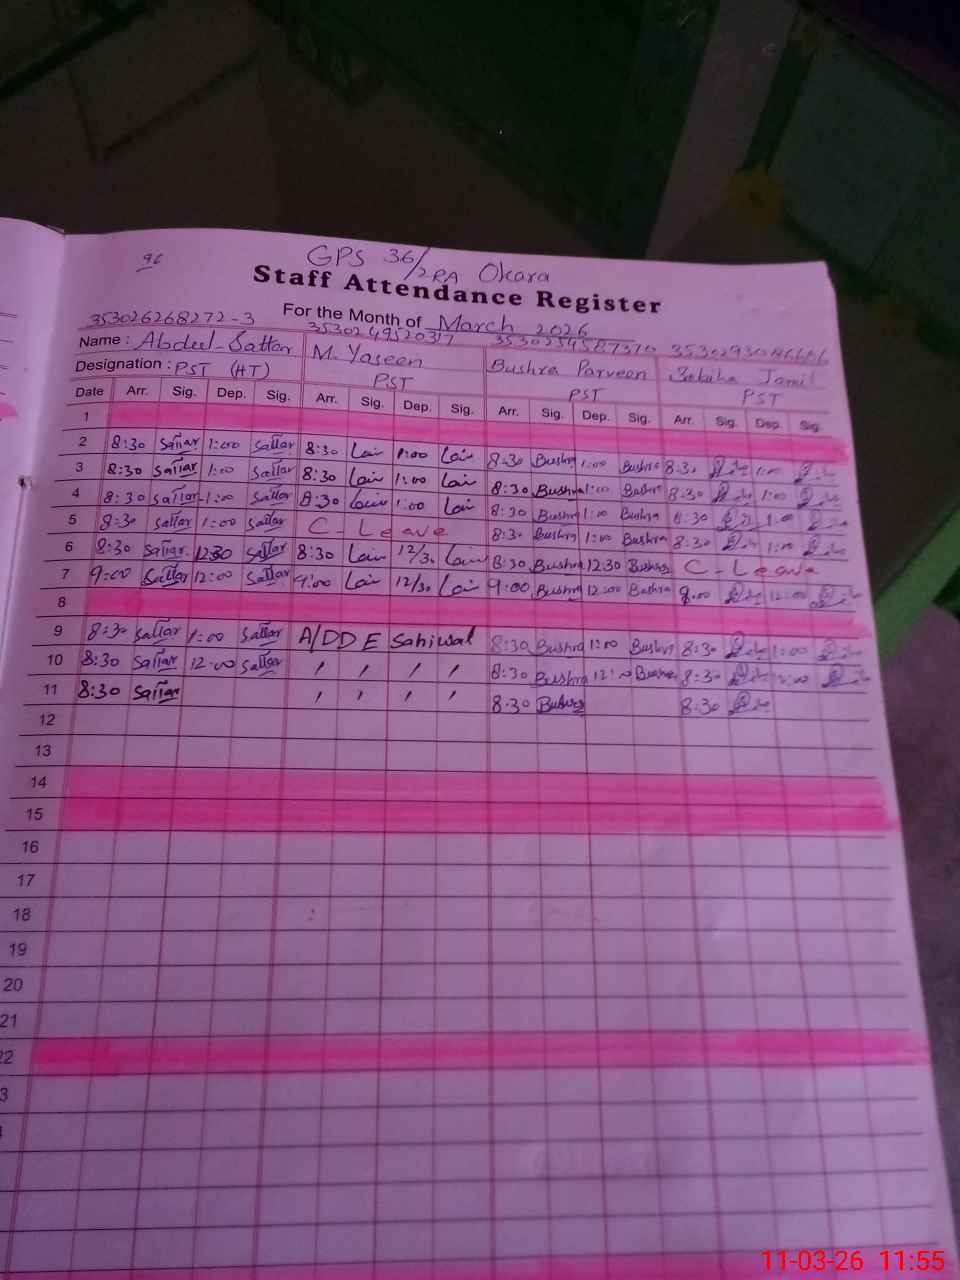 96
GPS 36/2RA Okara
Staff Attendance Register
For the Month of March 2026
353026268272-3 3530249520317
Name : Abdul-Sattar M. Yaseen Bushra Parveen Jamil
Designation : PST (HT) PST PST PST
Date Arr. Sig. Dep. Sig. Arr. Sig. Dep. Sig. Arr. Sig. Dep. Sig. Arr. Sig. Dep. Sig.
1
2 8:30 Sattar 1:00 Sattar 8:30 1:00 8:30 Bushra 1:00 Bushra 8:30 1:00
3 8:30 Sattar 1:00 Sattar 8:30 1:00 8:30 Bushra 1:00 Bushra 8:30 1:00
4 8:30 Sattar 1:00 Sattar 8:30 1:00 8:30 Bushra 1:00 Bushra 8:30 1:00
5 8:30 Sattar 1:00 Sattar C-Leave 8:30 Bushra 1:00 Bushra 8:30 1:00
6 8:30 Sattar 12:30 Sattar 8:30 12/30 8:30 Bushra 12:30 Bushra C-Leave
7 9:00 Sattar 12:00 Sattar 9:00 12/30 9:00 Bushra 12:00 Bushra 12:00
8
9 8:30 Sattar 1:00 Sattar A/DDE Sahiwal 8:30 Bushra 1:00 Bushra 8:30 1:00
10 8:30 Sattar 12:00 Sattar 〃 〃 〃 〃 8:30 Bushra 12:00 Bushra 8:30 12:00
11 8:30 Sattar 〃 〃 〃 〃 8:30 Bushra 8:30
12
13
14
15
16
17
18
19
20
21
22
3
11-03-26 11:55